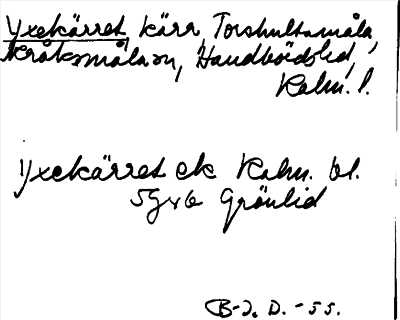 Yxekärret, kärr, Torshultamåla,
Kråksmåla sn, Handbördshd,
Kalm. l.
Yxekärret ek Kalm. bl.
5G x 6 Grönlid
B-J. D. -55.